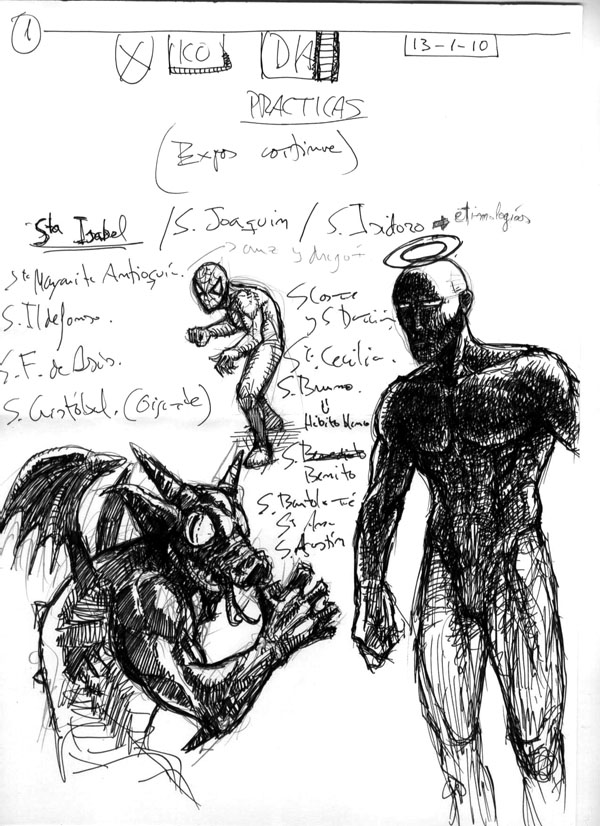 1
X ICO DIA 13-1-10
PRACTICAS
(Expos continue)
Sta Isabel / S. Joaquin / S. Isidoro → etimologías
Sta Margarita Antioquía.
S. Ildefonso.
S. F. de Asís.
S. Cristóbal. (Gigante)
S Cosme
y S Damián
Sta. Cecilia.
S. Bruno
Hábito blanco
S. Benedicto
Benito
S. Bartolomé
Sta Ana
S. Agustín